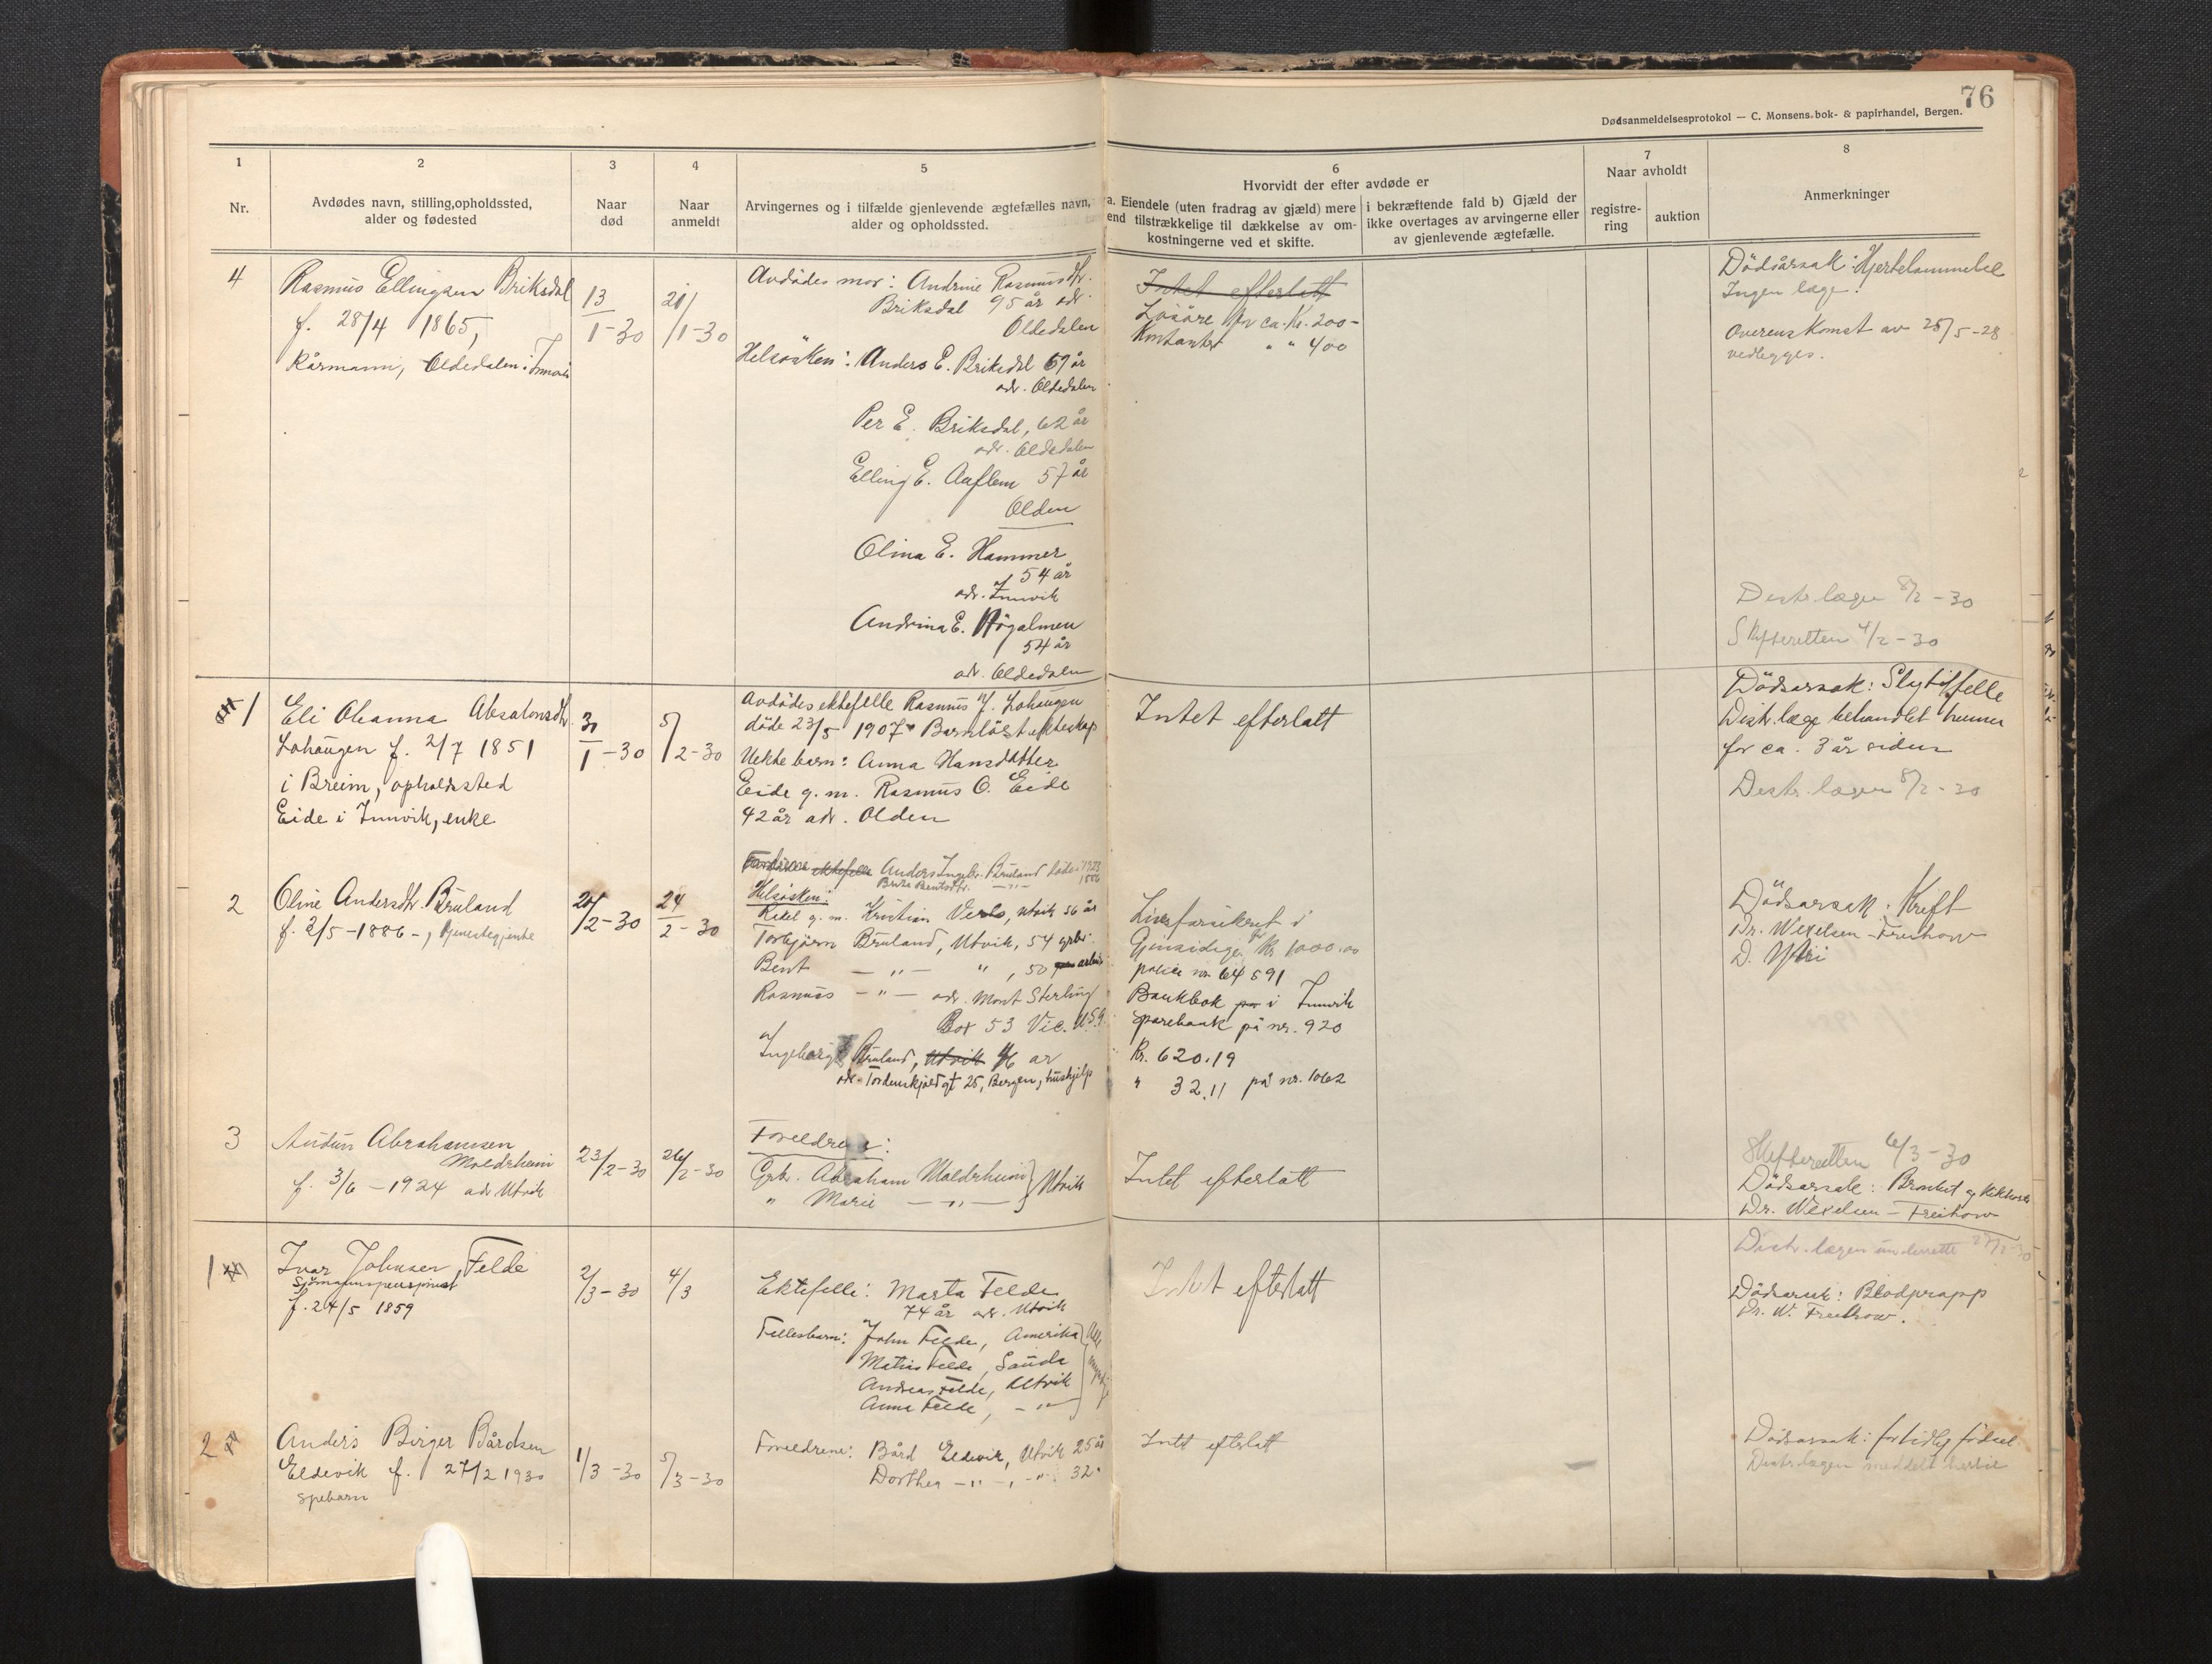 76
Dødsanmeldelsesprotokol — C. Monsens bok- & papirhandel, Bergen.
1
Nr.
2
Avdødes navn, stilling, opholdssted,
alder og fødested
3
Naar
død
4
Naar
anmeldt
5
Arvingernes og i tilfælde gjenlevende ægtefælles navn,
alder og opholdssted.
6
Hvorvidt der efter avdøde er
a. Eiendele (uten fradrag av gjæld) mere
end tilstrækkelige til dækkelse av om-
kostningerne ved et skifte.
i bekræftende fald b) Gjæld der
ikke overtages av arvingerne eller
av gjenlevende ægtefælle.
7
Naar avholdt
registre-
ring
auktion
8
Anmerkninger
4
Rasmus Ellingsen Briksdal
f. 28/4 1865,
Kårmann, Oldedalen i Innvik
13/1-30
21/1-30
Avdödes mor: Andrine Rasmusdtr.
Briksdal 95 år adr.
Oldedalen
Helsösken: Anders E. Briksdal 67 år
adr. Oldedalen
Per E. Briksdal, 62 år
adr. Oldedalen
Elling E. Aaflem 57 år
Olden
Olina E. Hammer
54 år
adr. Innvik
Andrina E.
54 år
adr. Oldedalen
Intet efterlatt
Lösöre for ca. Kr. 200-
Kontanter " " 400
Dödsårsak: Hjertelammelse
Ingen læge.
Overenskomst av 25/5-28
vedlegges.
Distr.lægen 8/2-30
Skifteretten 4/2-30
1
Eli Oleanna Absalonsdtr.
Lohaugen f. 2/7 1851
i Breim, opholdssted
Eide i Innvik, enke
31/1-30
5/2-30
Avdödes ektefelle Rasmus J. Lohaugen
döde 23/5 1907. Barnlöst ekteskap
Uekte barn: Anna Hansdatter
Eide g.m. Rasmus O. Eide
42 år adr. Olden
Intet efterlatt
Dödsarsak: Slagtilfelle
Distr.læge behandlet henne
for ca. 3 år siden
Distr.lægen 8/2-30
2
Oline Andersdtr. Bruland
f. 2/5-1886-, tjenestegjente
20/2-30
24/2-30
Foreldrene ektefelle Anders Ingebr. Bruland döde i 1923
Brite Bentsdtr. —"— 1886
Helsösken:
Rakel g.m. Kristian Verlo, Utvik 56 år
Torbjørn Bruland, Utvik, 54 grbr.
Bent —"— " , 50 arbeid
Rasmus —"— adr. Mont Sterling
Box 53 Vic. U.S.A.
Ingeborg Bruland, Utvik 46 ar
adr. Tordenskjoldgt 25, Bergen, hushjelp
Livsforsikret i
Gjensidige for Kr 1000.00
police nr. 64591
Bankbok i Innvik
Sparebank på nr. 920
Kr. 620.19
" 32.11 på nr. 1062
Dödsarsak: Kreft
Dr. Wexelsen-Freihow
D. Ytri
3
Audun Abrahamsen
Moldrheim
f. 3/6-1924 adr. Utvik
23/2-30
26/2-30
Foreldrene:
Grbr. Abraham Moldrheim } Utvik
" Marie —"—
Intet efterlatt
Skifteretten 6/3-30
Dödsarsak: Bronkit og kikhoste
Dr. Wexelsen-Freihow
Distr.lægen underrette 27/2-30
1
Ivar Johnsen Felde
Sjömannspensjonist
f. 24/5 1859
2/3-30
4/3
Ektefelle: Marta Felde
74 år adr. Utvik
Fellesbarn: John Felde, Amerika } Alle
Matias Felde, Sauda
Andreas Felde, Utvik
Anna Felde, —"—
Intet efterlatt
Dödsarsak: Blodpropp
Dr. W. Freihow.
2
Anders Birger Bårdsen
Eldevik f. 27/2 1930
spebarn
1/3-30
5/3-30
Foreldrene: Bård Eldevik, Utvik 25 år
Dorthea —"—, —"— 32 "
Intet efterlatt
Dödsarsak: for tidlig födsel
Distr.lægen meddelt herfra